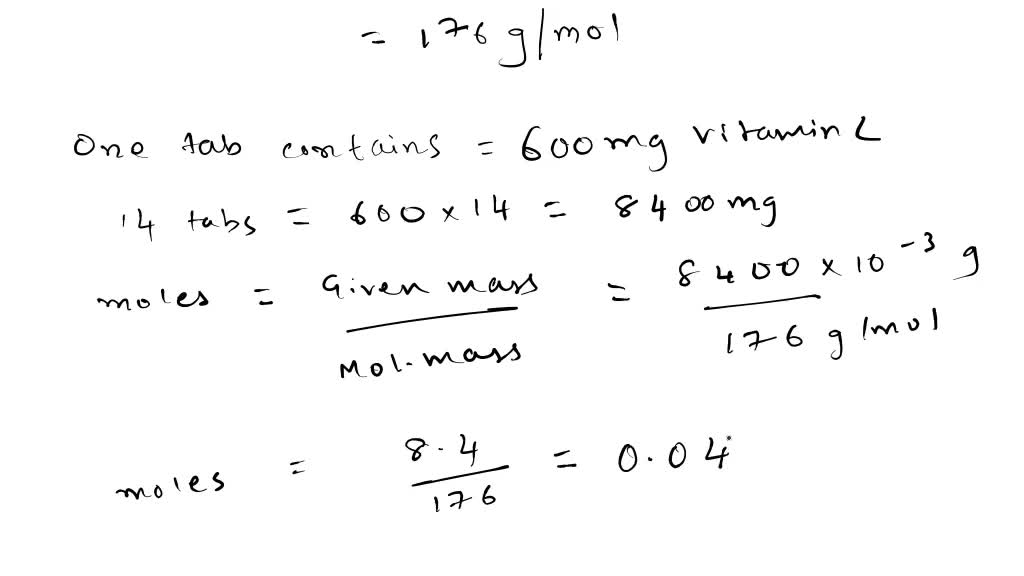 = 176 g/mol
One tab contains = 600mg vitamin C
14 tabs = 600 x 14 = 8400mg
moles = Given mass / Mol. mass = 8400 x 10⁻³ g / 176 g/mol
moles = 8.4 / 176 = 0.04